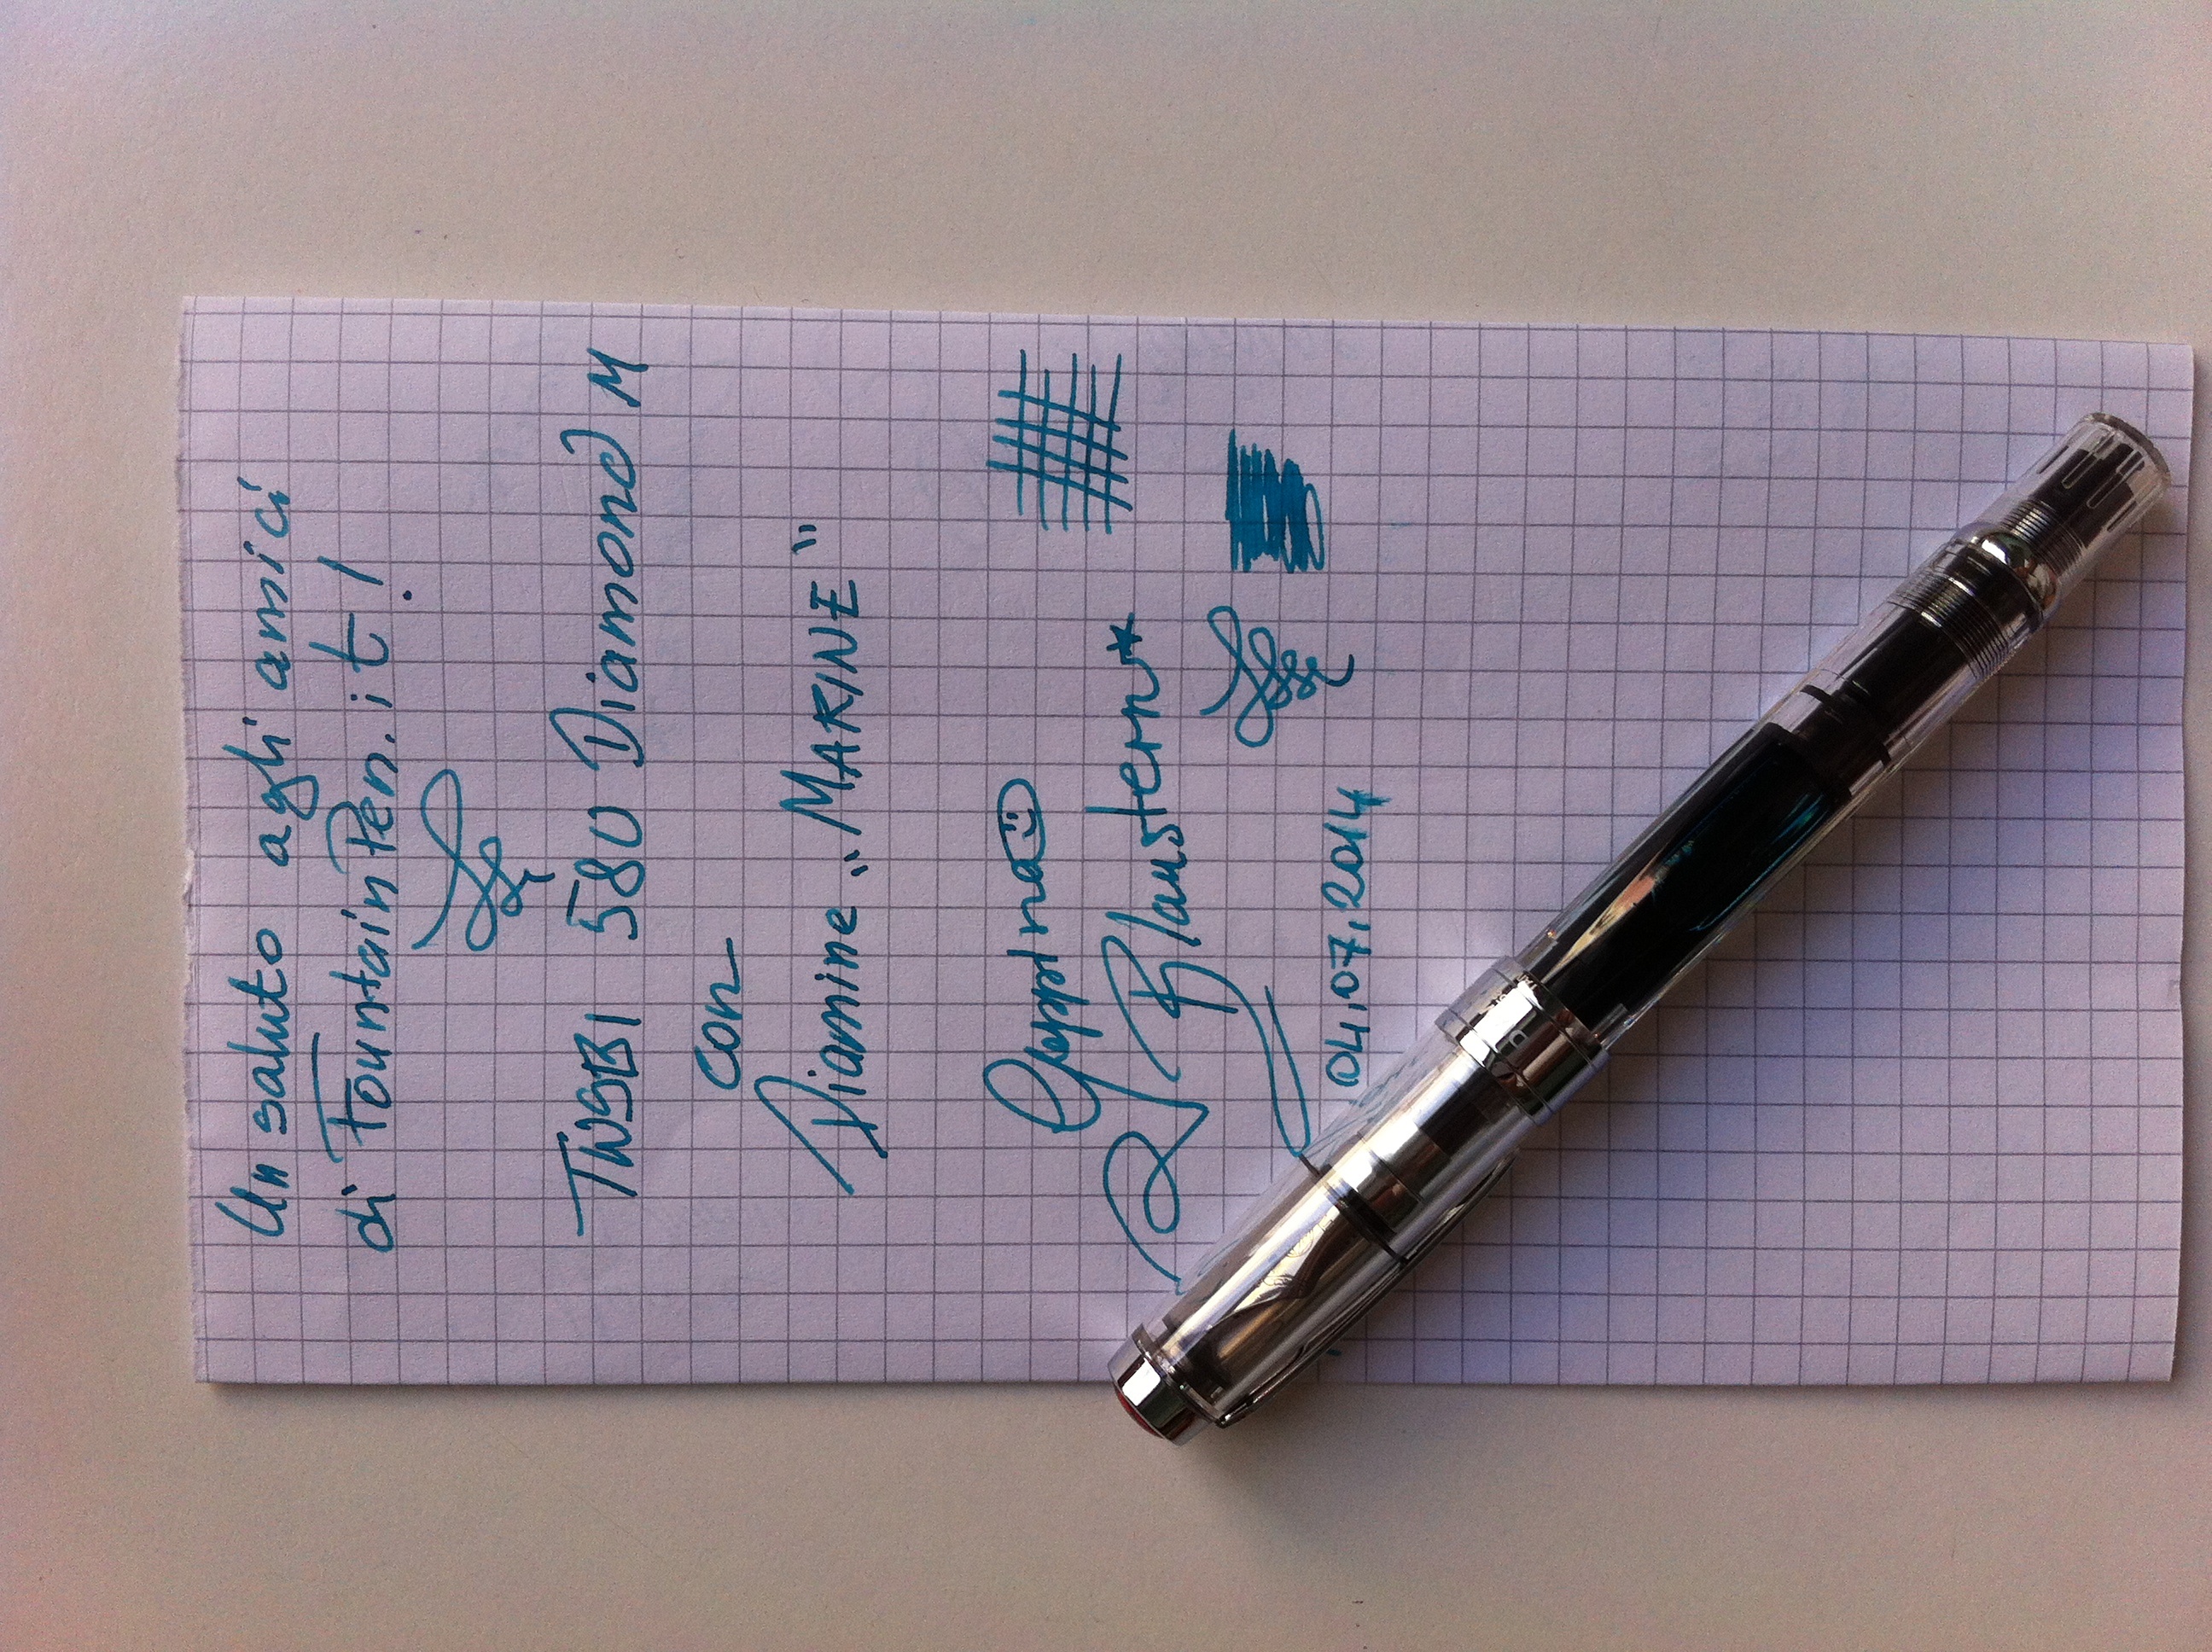 Un saluto agli amici
di FountainPen.it!
TWSBI 580 Diamond M
con
Diamine "MARINE"
Blaustern*
04.07.2014